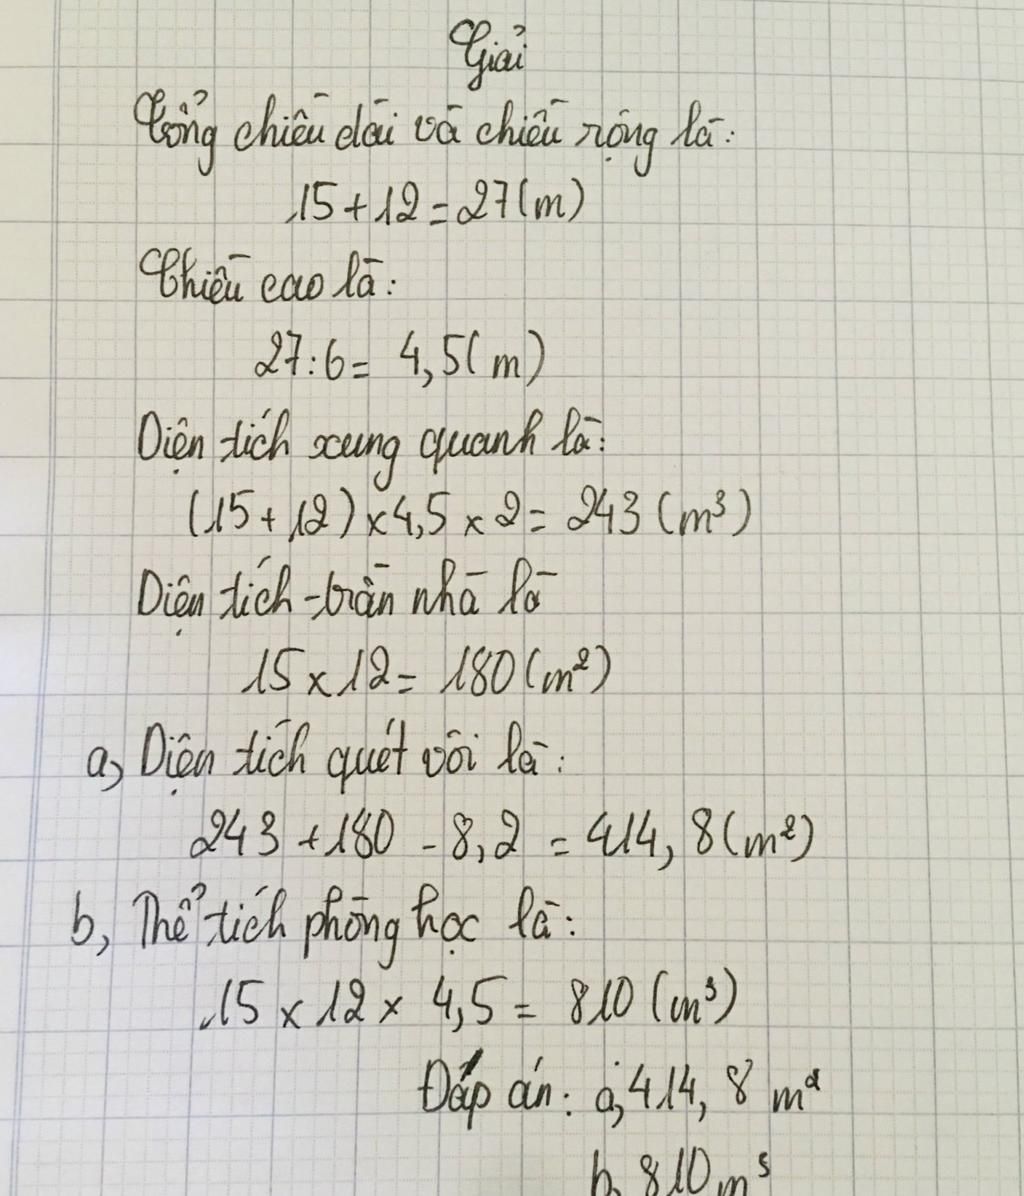 Giải
Tổng chiều dài và chiều rộng là:
15 + 12 = 27 (m)
Chiều cao là:
27 : 6 = 4,5 (m)
Diện tích xung quanh là:
(15 + 12) x 4,5 x 2 = 243 (m³)
Diện tích trần nhà là
15 x 12 = 180 (m²)
a, Diện tích quét vôi là:
243 + 180 - 8,2 = 414,8 (m²)
b, Thể tích phòng học là:
15 x 12 x 4,5 = 810 (m³)
Đáp án: a, 414,8 m²
b, 810 m³